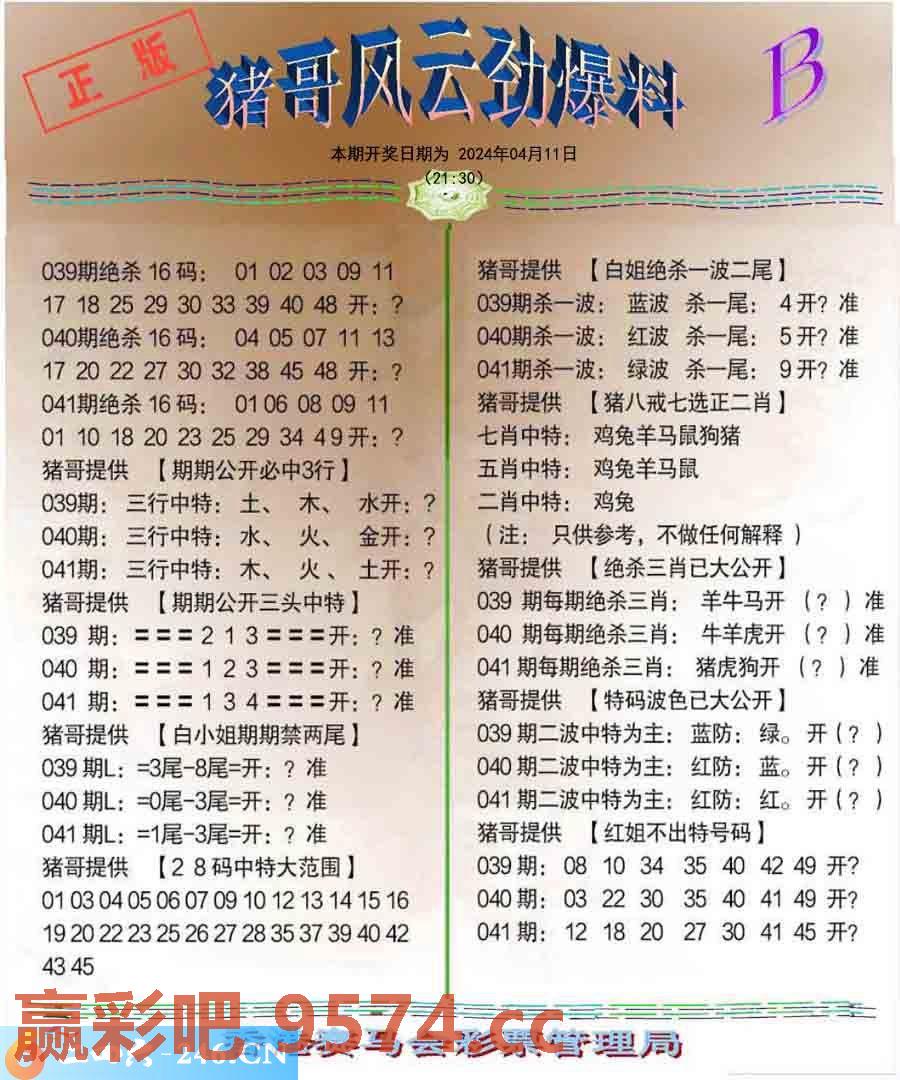 正版
猪哥风云劲爆料
B
本期开奖日期为 2024年04月11日
(21:30)
039期绝杀16码： 01 02 03 09 11
17 18 25 29 30 33 39 40 48 开：?
040期绝杀16码： 04 05 07 11 13
17 20 22 27 30 32 38 45 48 开：?
041期绝杀16码： 01 06 08 09 11
01 10 18 20 23 25 29 34 49开：?
猪哥提供 【期期公开必中3行】
039期：三行中特：土、 木、 水开：?
040期：三行中特：水、 火、 金开：?
041期：三行中特：木、 火、 土开：?
猪哥提供 【期期公开三头中特】
039 期：===2 1 3===开：? 准
040 期：===1 2 3===开：? 准
041 期：===1 3 4===开：? 准
猪哥提供 【白小姐期期禁两尾】
039期L：=3尾-8尾=开：? 准
040期L：=0尾-3尾=开：? 准
041期L：=1尾-3尾=开：? 准
猪哥提供 【28码中特大范围】
01 03 04 05 06 07 09 10 12 13 14 15 16
19 20 22 23 25 26 27 28 35 37 39 40 42
43 45
猪哥提供 【白姐绝杀一波二尾】
039期杀一波： 蓝波 杀一尾： 4开? 准
040期杀一波： 红波 杀一尾： 5开? 准
041期杀一波： 绿波 杀一尾： 9开? 准
猪哥提供 【猪八戒七选正二肖】
七肖中特： 鸡兔羊马鼠狗猪
五肖中特： 鸡兔羊马鼠
二肖中特： 鸡兔
（注： 只供参考，不做任何解释 ）
猪哥提供 【绝杀三肖已大公开】
039 期每期绝杀三肖： 羊牛马开 （? ）准
040 期每期绝杀三肖： 牛羊虎开 （? ）准
041期每期绝杀三肖： 猪虎狗开 （? ）准
猪哥提供 【特码波色已大公开】
039期二波中特为主： 蓝防： 绿。开(? )
040期二波中特为主： 红防： 蓝。开(? )
041期二波中特为主： 红防： 红。开(? )
猪哥提供 【红姐不出特号码】
039期： 08 10 34 35 40 42 49 开?
040期： 03 22 30 35 40 41 49 开?
041期： 12 18 20 27 30 41 45 开?
赢彩吧.9574.cc
赛马会彩票管理局